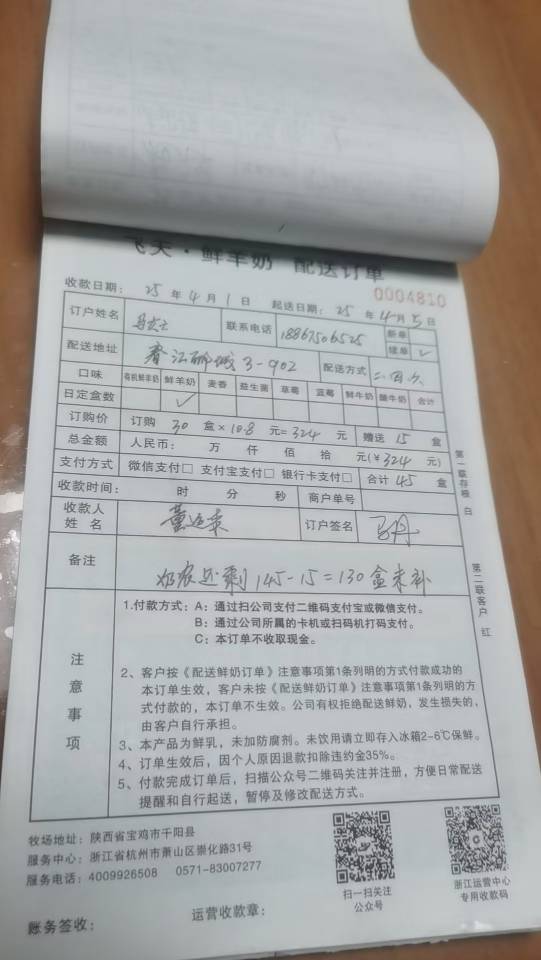 飞天·鲜羊奶 配送订单
0004810
收款日期: 25 年 4 月 1 日 起送日期: 25 年 4 月 5 日
订户姓名 马女士 联系电话 18867506525 新单
续单 ✓
配送地址 香江郦城 3-902 配送方式 二四六
口味 有机鲜羊奶 鲜羊奶 麦香 益生菌 草莓 蓝莓 鲜牛奶 酸牛奶 合计
日定盒数 ✓
订购价 订购 30 盒×10.8 元=324 元 赠送 15 盒
总金额 人民币: 万 仟 佰 拾 元(¥324 元)
支付方式 微信支付□ 支付宝支付□ 银行卡支付□ 合计 45 盒
收款时间: 时 分 秒 商户单号
收款人姓名 订户签名
备注 奶农还剩 145-15=130 盒未补
第一联存根 白
第二联客户 红
注意事项
1.付款方式: A: 通过扫公司支付二维码支付宝或微信支付。
B: 通过公司所属的卡机或扫码机打码支付。
C: 本订单不收取现金。
2、客户按《配送鲜奶订单》注意事项第1条列明的方式付款成功的
本订单生效，客户未按《配送鲜奶订单》注意事项第1条列明的方
式付款的，本订单不生效。公司有权拒绝配送鲜奶，发生损失的，
由客户自行承担。
3、本产品为鲜乳，未加防腐剂。未饮用请立即存入冰箱2-6℃保鲜。
4、订单生效后，因个人原因退款扣除违约金35%。
5、付款完成订单后，扫描公众号二维码关注并注册，方便日常配送
提醒和自行起送，暂停及修改配送方式。
牧场地址: 陕西省宝鸡市千阳县
服务中心: 浙江省杭州市萧山区崇化路31号
服务电话: 4009926508 0571-83007277
扫一扫关注
公众号
浙江运营中心
专用收款码
账务签收: 运营收款章: